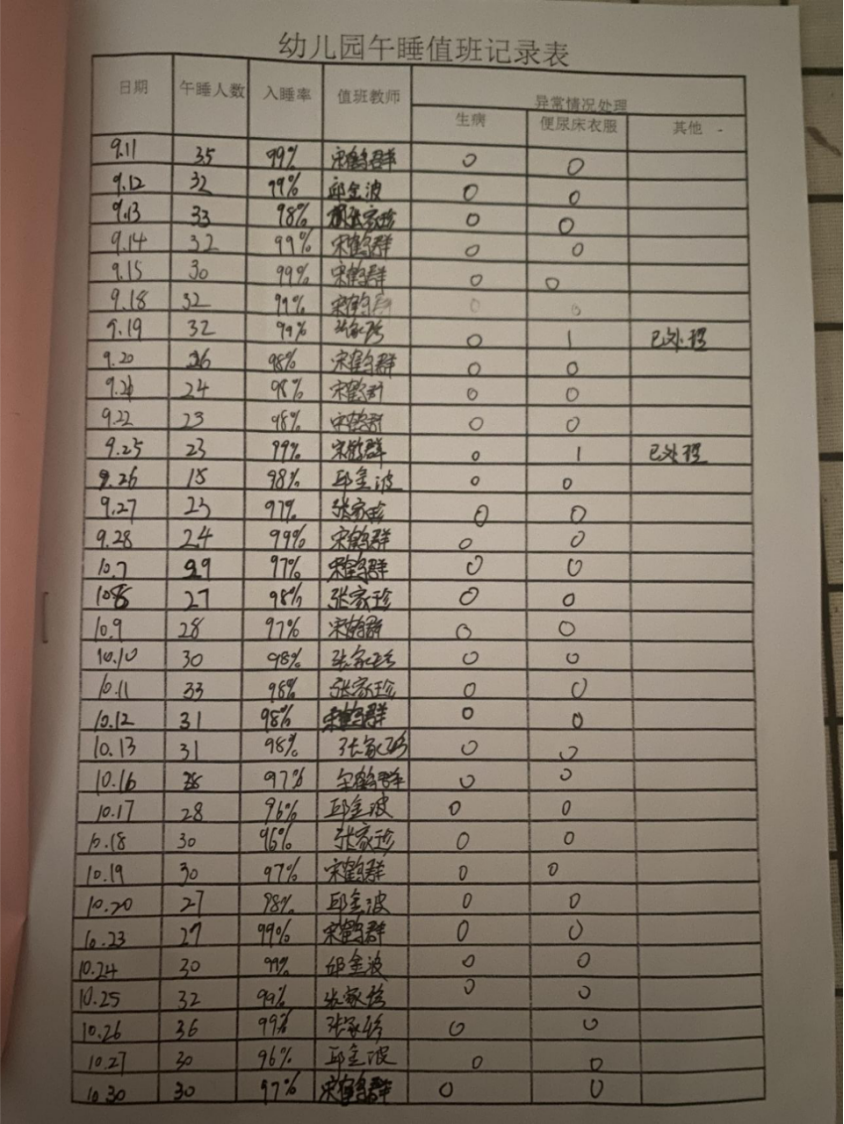 幼儿园午睡值班记录表
日期 午睡人数 入睡率 值班教师 异常情况处理
生病 便尿床衣服 其他
9.11 35 99% 宋鹤群 0 0
9.12 32 99% 邱金波 0 0
9.13 33 98% 张家珍 0 0
9.14 32 99% 宋鹤群 0 0
9.15 30 99% 宋鹤群 0 0
9.18 32 99% 宋鹤群 0 0
9.19 32 99% 张家珍 0 1 已处理
9.20 26 98% 宋鹤群 0 0
9.21 24 98% 宋鹤群 0 0
9.22 23 98% 宋鹤群 0 0
9.25 23 99% 宋鹤群 0 1 已处理
9.26 15 98% 邱金波 0 0
9.27 23 97% 张家珍 0 0
9.28 24 99% 宋鹤群 0 0
10.7 29 97% 宋鹤群 0 0
10.8 27 98% 张家珍 0 0
10.9 28 97% 宋鹤群 0 0
10.10 30 98% 张家珍 0 0
10.11 33 98% 张家珍 0 0
10.12 31 98% 宋鹤群 0 0
10.13 31 98% 张家珍 0 0
10.16 28 97% 宋鹤群 0 0
10.17 28 96% 邱金波 0 0
10.18 30 96% 张家珍 0 0
10.19 30 97% 宋鹤群 0 0
10.20 27 98% 邱金波 0 0
10.23 27 99% 宋鹤群 0 0
10.24 30 99% 邱金波 0 0
10.25 32 99% 张家珍 0 0
10.26 36 99% 张家珍 0 0
10.27 30 96% 邱金波 0 0
10.30 30 97% 宋鹤群 0 0